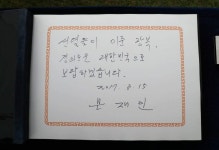 선열들이 이룬 광복,
정의로운 대한민국으로
보답하겠습니다.
2017. 8. 15
문 재 인